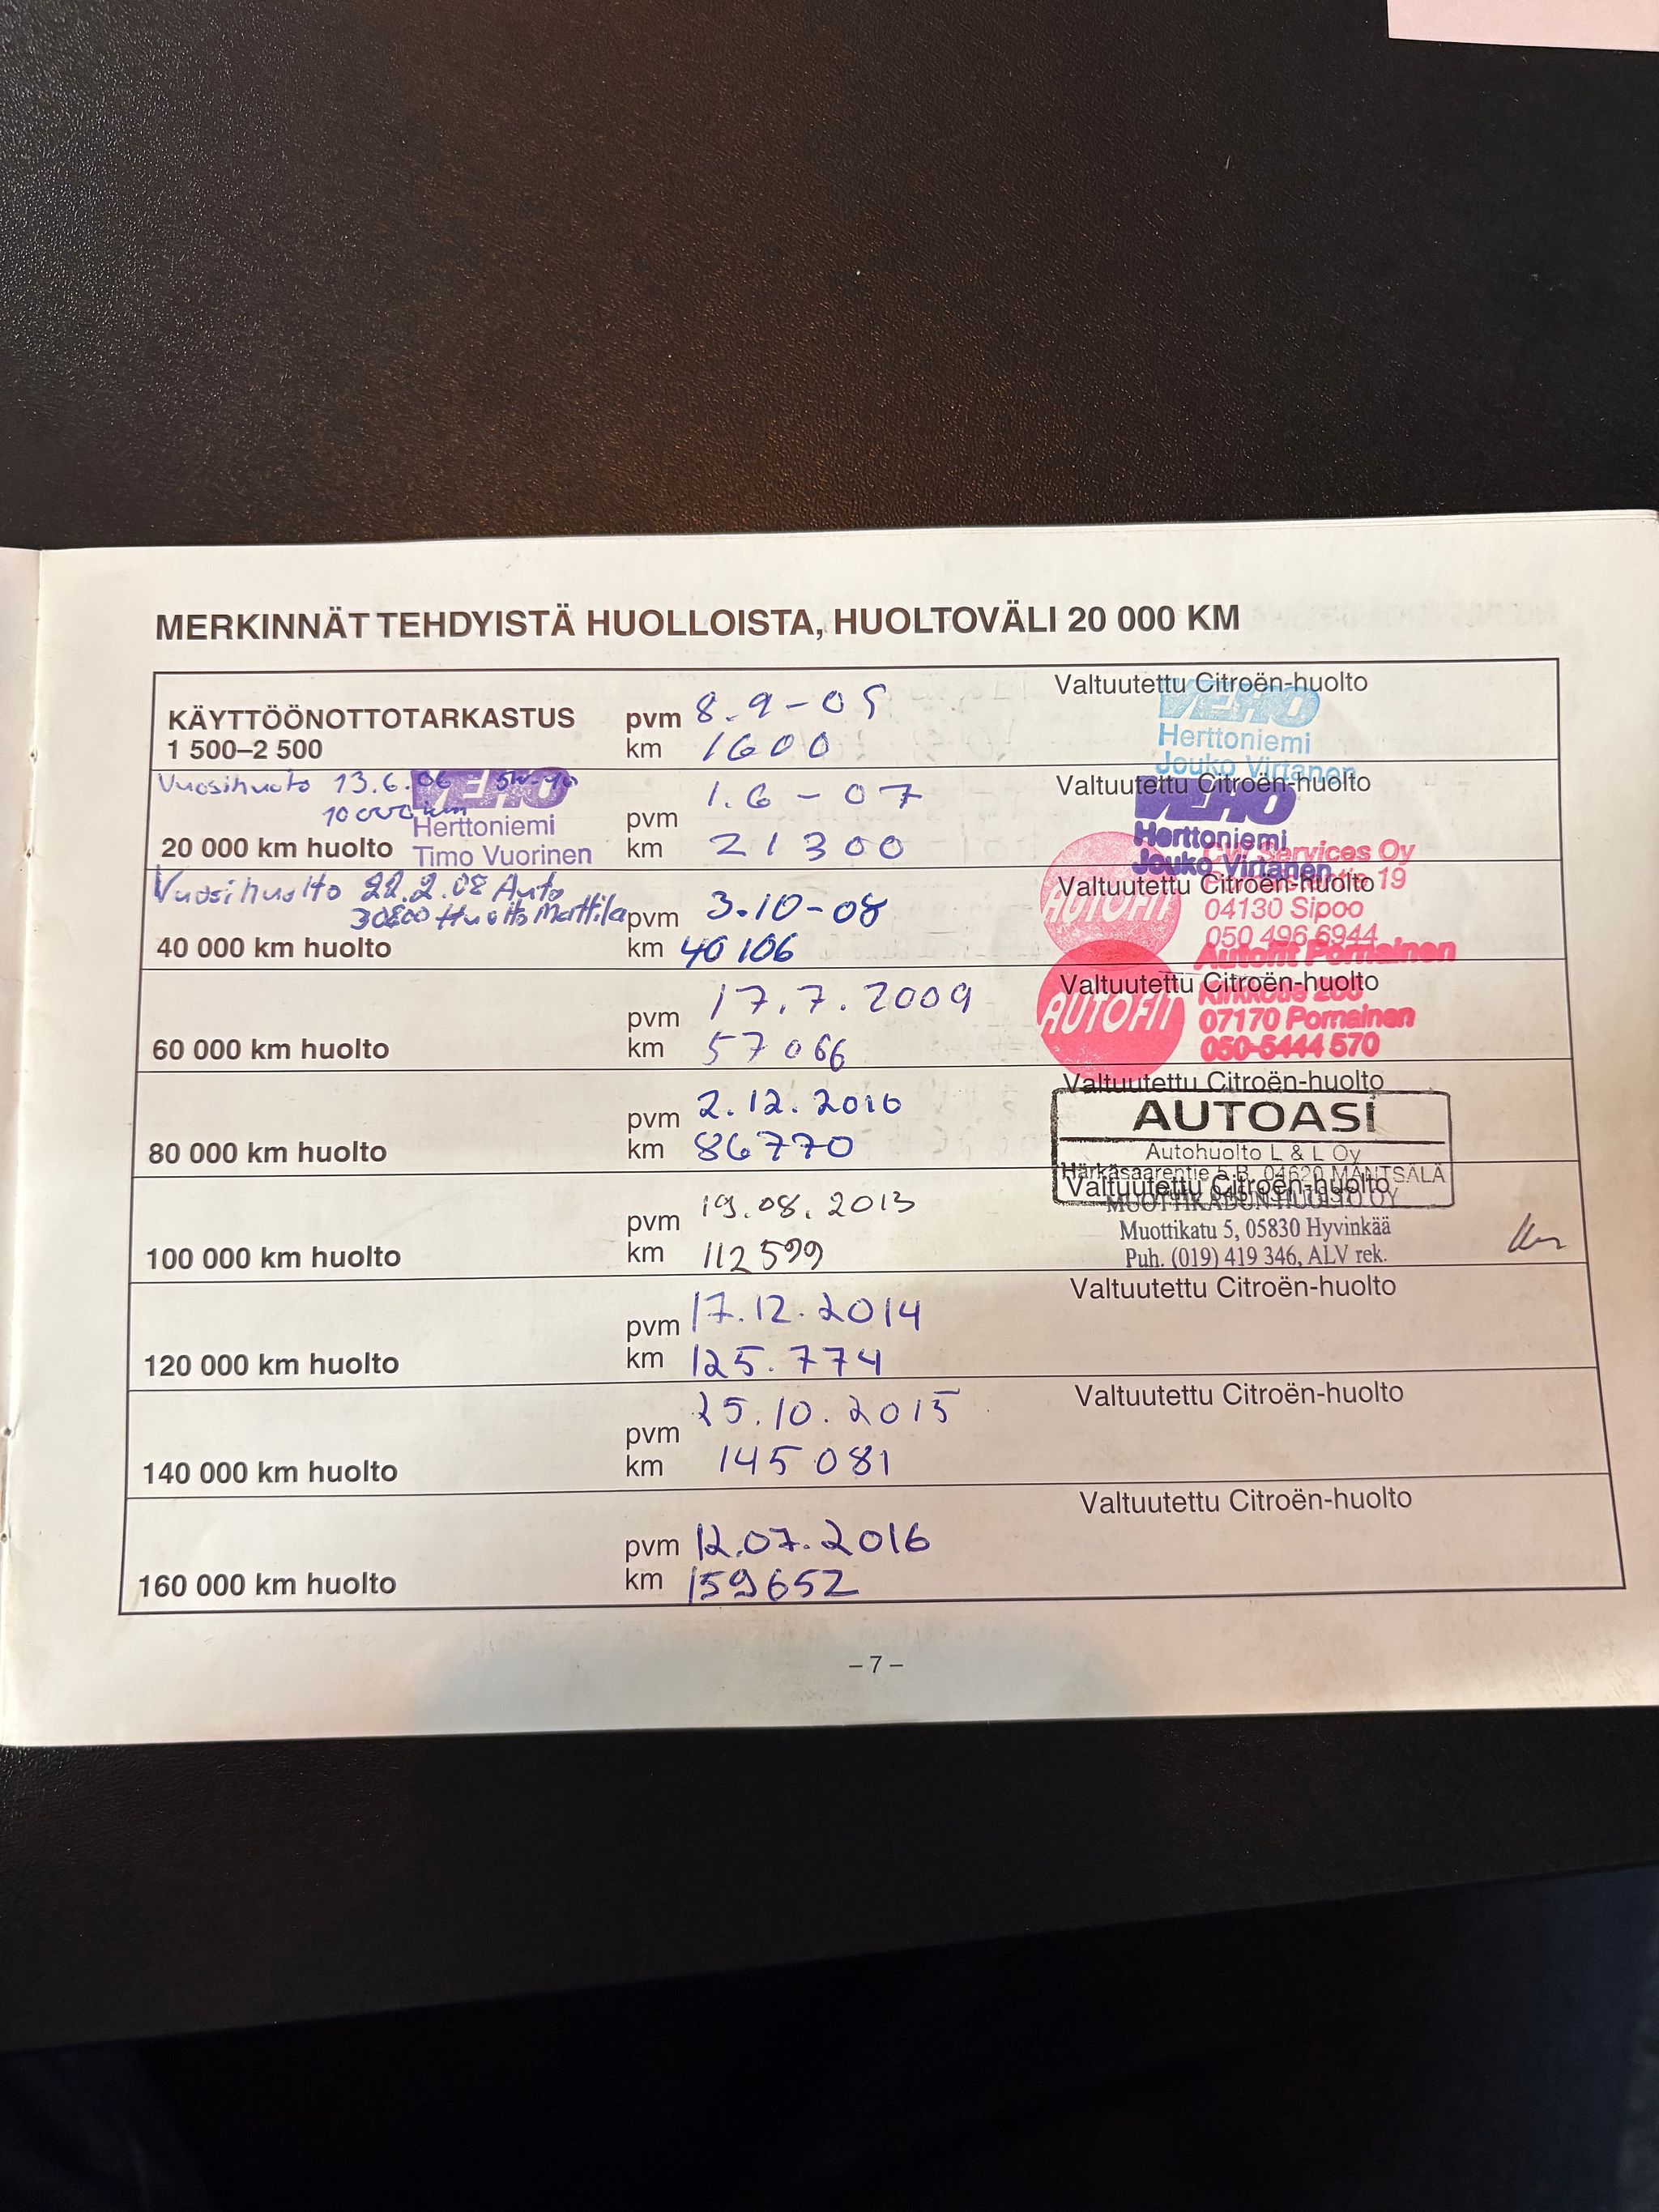 MERKINNÄT TEHDYISTÄ HUOLLOISTA, HUOLTOVÄLI 20 000 KM
KÄYTTÖÖNOTTOTARKASTUS
1 500–2 500
pvm 8.9-05
km 1600
Valtuutettu Citroën-huolto
VEHO
Herttoniemi
Jouko Virtanen
Vuosihuolto 13.6.06 5W-40
10 000 km
VEHO
Herttoniemi
Timo Vuorinen
20 000 km huolto
pvm 1.6-07
km 21300
Valtuutettu Citroën-huolto
VEHO
Herttoniemi
Jouko Virtanen
Vuosihuolto 22.2.08 Auto
Huolto Mattila
40 000 km huolto
pvm 3.10-08
km 40106
Valtuutettu Citroën-huolto
AUTOFIT
Services Oy
19
04130 Sipoo
050 496 6944
60 000 km huolto
pvm 17.7.2009
km 57066
Valtuutettu Citroën-huolto
AUTOFIT
Autofit Pornainen
07170 Pornainen
050-5444 570
80 000 km huolto
pvm 2.12.2010
km 86770
Valtuutettu Citroën-huolto
AUTOASI
Autohuolto L & L Oy
Härkäsaarentie 5 B, 04620 MÄNTSÄLÄ
100 000 km huolto
pvm 19.08.2013
km 112599
Valtuutettu Citroën-huolto
MUOTTIKADUN HUOLTO OY
Muottikatu 5, 05830 Hyvinkää
Puh. (019) 419 346, ALV rek.
120 000 km huolto
pvm 17.12.2014
km 125.774
Valtuutettu Citroën-huolto
140 000 km huolto
pvm 25.10.2015
km 145081
Valtuutettu Citroën-huolto
160 000 km huolto
pvm 12.07.2016
km 159652
Valtuutettu Citroën-huolto
– 7 –